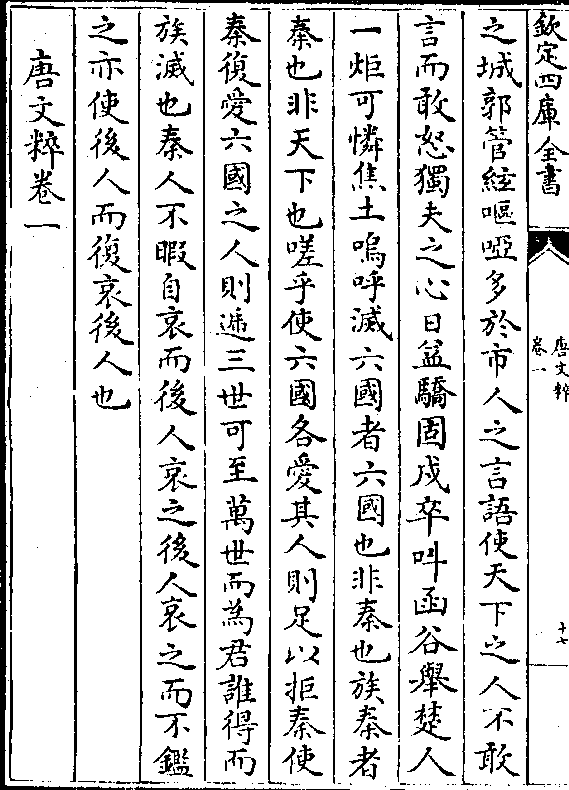 欽定四庫全書
唐文粹
卷一
十七
之城郭管絃嘔啞多於市人之言語使天下之人不敢
言而敢怒獨夫之心日益驕固戍卒叫函谷舉楚人
一炬可憐焦土嗚呼滅六國者六國也非秦也族秦者
秦也非天下也嗟乎使六國各愛其人則足以拒秦使
秦復愛六國之人則遞三世可至萬世而為君誰得而
族滅也秦人不暇自哀而後人哀之後人哀之而不鑑
之亦使後人而復哀後人也
唐文粹卷一